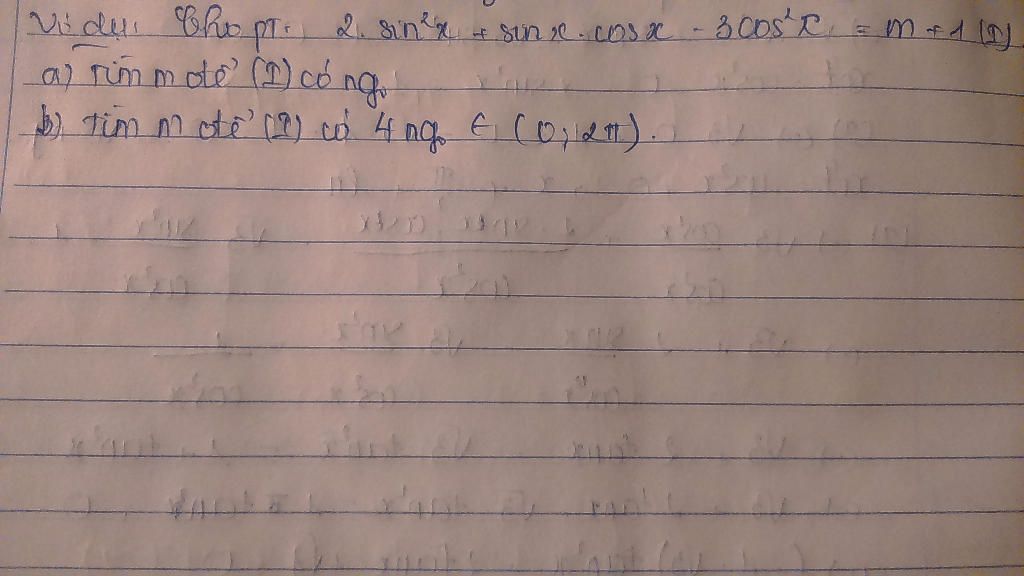 Ví dụ: Cho pt: 2. sin²x + sin x . cos x - 3cos²x = m + 1 (1).
a) Tìm m để (1) có ng₀
b) tìm m để (1) có 4 ng₀ ∈ (0; 2π).